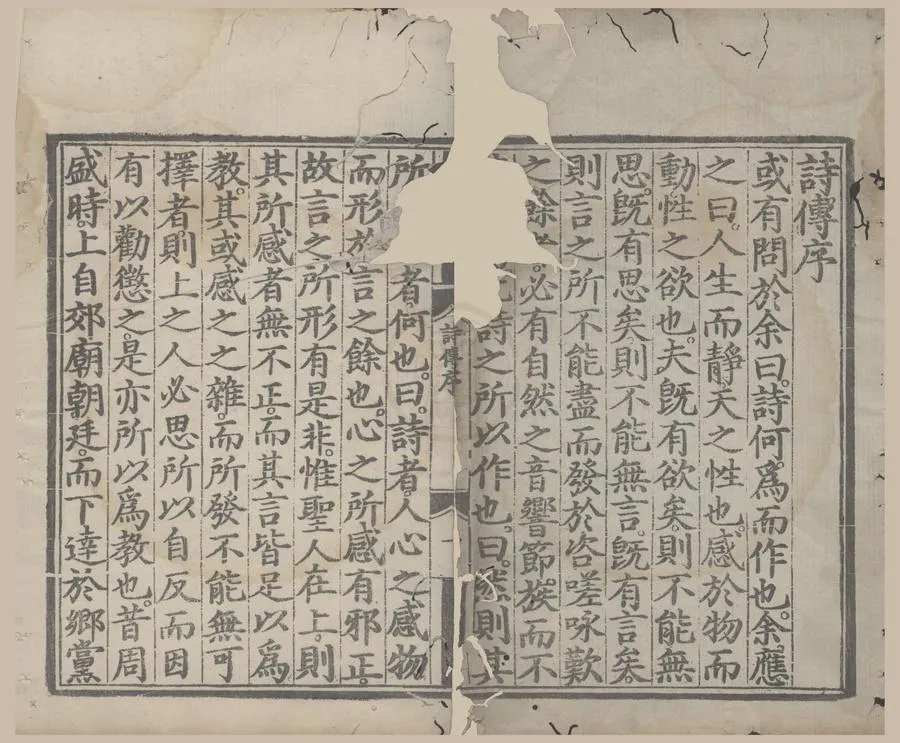 詩傳序
或有問於余曰。詩何爲而作也。余應
之曰。人生而靜。天之性也。感於物而
動。性之欲也。夫旣有欲矣。則不能無
思。旣有思矣。則不能無言。旣有言矣。
則言之所不能盡而發於咨嗟咏歎
之餘者。必有自然之音響節族。而不
詩之所以作也。曰。然則其
詩傳序
一
所者。何也。曰。詩者。人心之感物
而形於言之餘也。心之所感有邪正。
故言之所形有是非。惟聖人在上。則
其所感者無不正。而其言皆足以爲
教。其或感之之雜。而所發不能無可
擇者。則上之人必思所以自反而因
有以勸懲之。是亦所以爲教也。昔周
盛時。上自郊廟朝廷。而下達於鄉黨